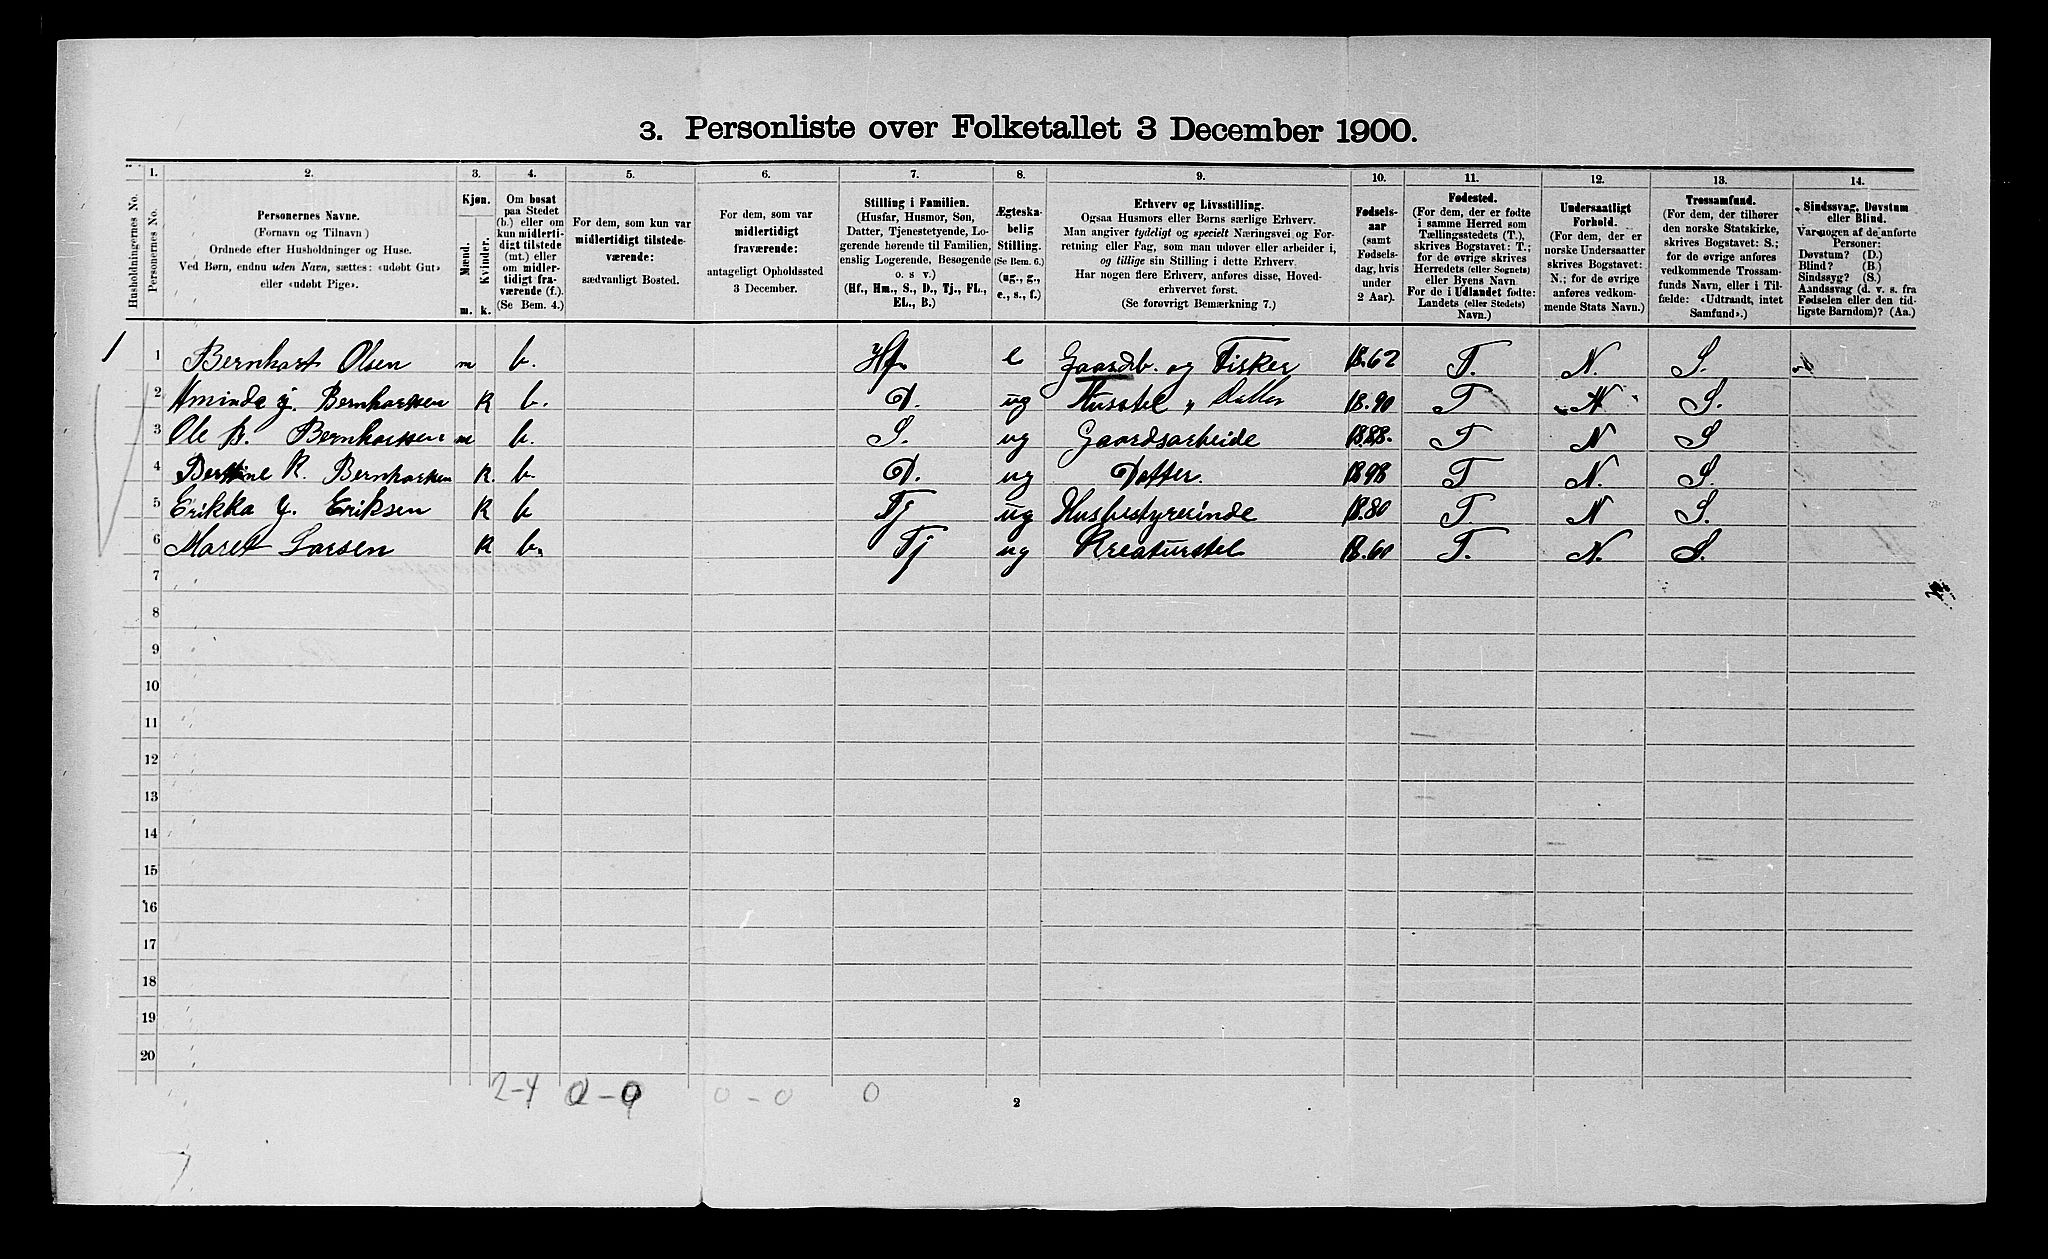 3. Personliste over Folketallet 3 December 1900.
1. 2. 3. 4. 5. 6. 7. 8. 9. 10. 11. 12. 13. 14.
Husholdningernes No.
Personernes No.
Personernes Navne.
(Fornavn og Tilnavn)
Ordnede efter Husholdninger og Huse.
Ved Børn, endnu uden Navn, sættes: «udøbt Gut»
eller «udøbt Pige».
Kjøn.
Mænd. Kvinder.
m. k.
Om bosat
paa Stedet
(b.) eller om
kun midlerti-
digt tilstede
(mt.) eller
om midler-
tidigt fra-
værende (f.).
(Se Bem. 4.)
For dem, som kun var
midlertidigt tilstede-
værende:
sædvanligt Bosted.
For dem, som var
midlertidigt
fraværende:
antageligt Opholdssted
3 December.
Stilling i Familien.
(Husfar, Husmor, Søn,
Datter, Tjenestetyende, Lo-
gerende hørende til Familien,
enslig Logerende, Besøgende
o. s v.)
(Hf., Hm., S., D., Tj., FL.,
EL., B.)
Ægteska-
belig
Stilling.
(Se Bem. 6.)
(ug., g.,
e., s., f.)
Erhverv og Livsstilling.
Ogsaa Husmors eller Børns særlige Erhverv.
Man angiver tydeligt og specielt Næringsvei og For-
retning eller Fag, som man udøver eller arbeider i,
og tillige sin Stilling i dette Erhverv.
Har nogen flere Erhverv, anføres disse, Hoved-
erhvervet først.
(Se forøvrigt Bemærkning 7.)
Fødsels-
aar
(samt
Fødsels-
dag, hvis
under
2 Aar).
Fødested.
(For dem, der er fødte
i samme Herred som
Tællingsstedets (T.),
skrives Bogstavet: T.;
for de øvrige skrives
Herredets (eller Sognets)
eller Byens Navn
For de i Udlandet fødte:
Landets (eller Stedets)
Navn.)
Undersaatligt
Forhold.
(For dem, der er
norske Undersaatter
skrives Bogstavet:
N.; for de øvrige
anføres vedkom-
mende Stats Navn.)
Trossamfund.
(For dem, der tilhører
den norske Statskirke,
skrives Bogstavet: S.;
for de øvrige anføres
vedkommende Trossam-
funds Navn, eller i Til-
fælde: «Udtraadt, intet
Samfund».)
Sindssvag, Døvstum
eller Blind.
Var nogen af de anførte
Personer:
Døvstum? (D.)
Blind? (B.)
Sindssyg? (S.)
Aandssvag (d. v. s. fra
Fødselen eller den tid-
ligste Barndom)? (Aa.)
1 1 Bernhart Olsen m b. Hf. e Gaardb. og Fisker 1862 T. N. S.
2 Aminda J. Bernharssen K b. D. ug Husstel " Datter 1890 T N S.
3 Ole B. Bernharssen m b. S. ug Gaardsarbeide 1888. T N S
4 Bertine K. Bernharssen K. b. D. ug Datter. 1898 T N. S.
5 Erikka J. Eriksen K b Tj ug Husbestyrerinde 1880 T N S.
6 Maret Larsen K b. Tj ug Kreaturstel 1860 T. N. S.
7
8
9
10
11
12
13
14
15
16
17
18
19
20
2-4 0-0 0-0 0
2